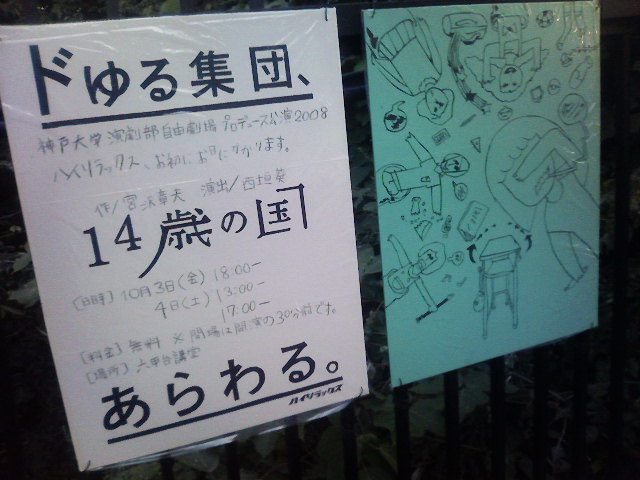 ドゆる集団、
神戸大学演劇部自由劇場プロデュース公演2008
ハイリラックス、お初にお目にかかります。
作/宮沢章夫 演出/西垣葵
14歳の国
[日時] 10月3日(金) 18:00-
4日(土) 13:00-
17:00-
[料金] 無料 ※開場は開演の30分前です。
[場所] 六甲台講堂
あらわる。
ハイリラックス